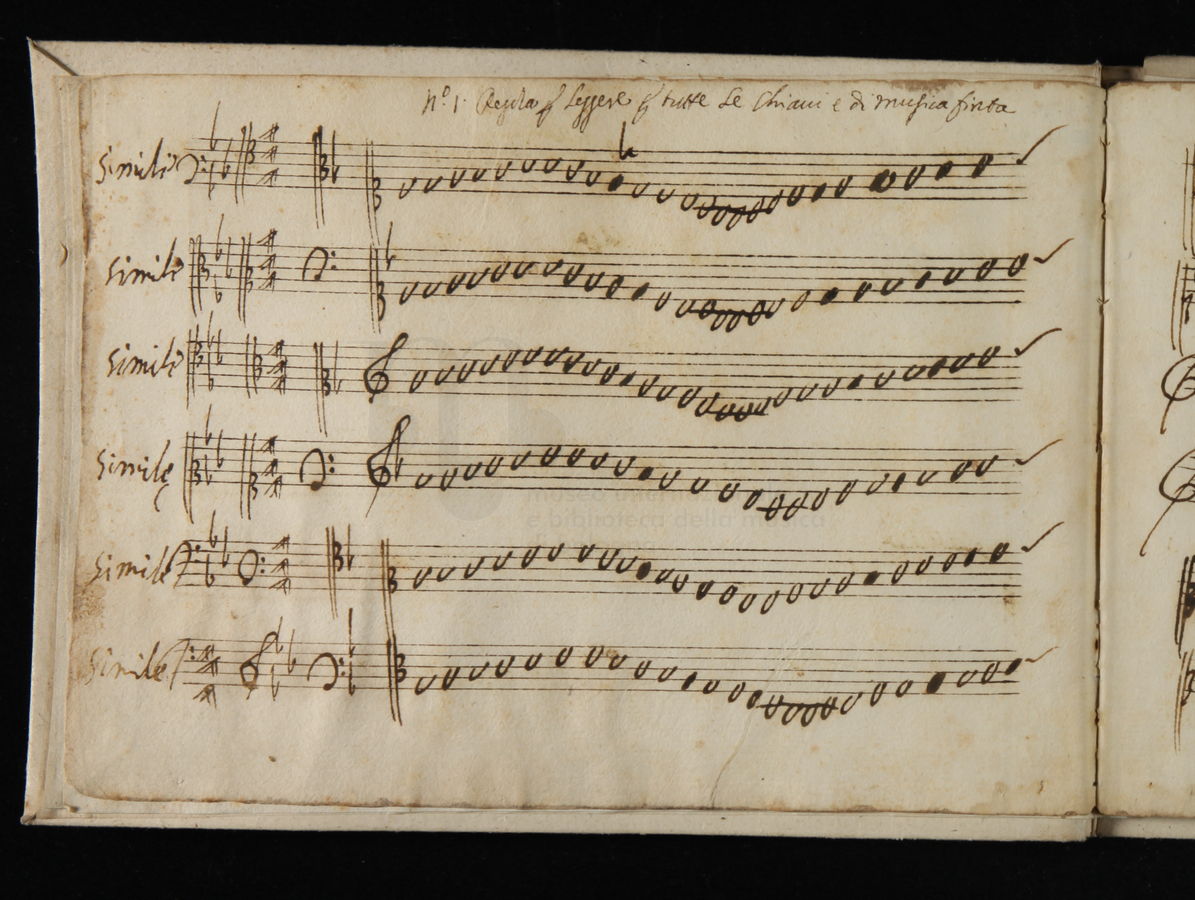 Nº. 1. Regola p leggere p tutte le Chiavi e di musica finta
Simile
Simile
Simile
Simile
museo interna
e biblioteca della musica
Simile
Simile